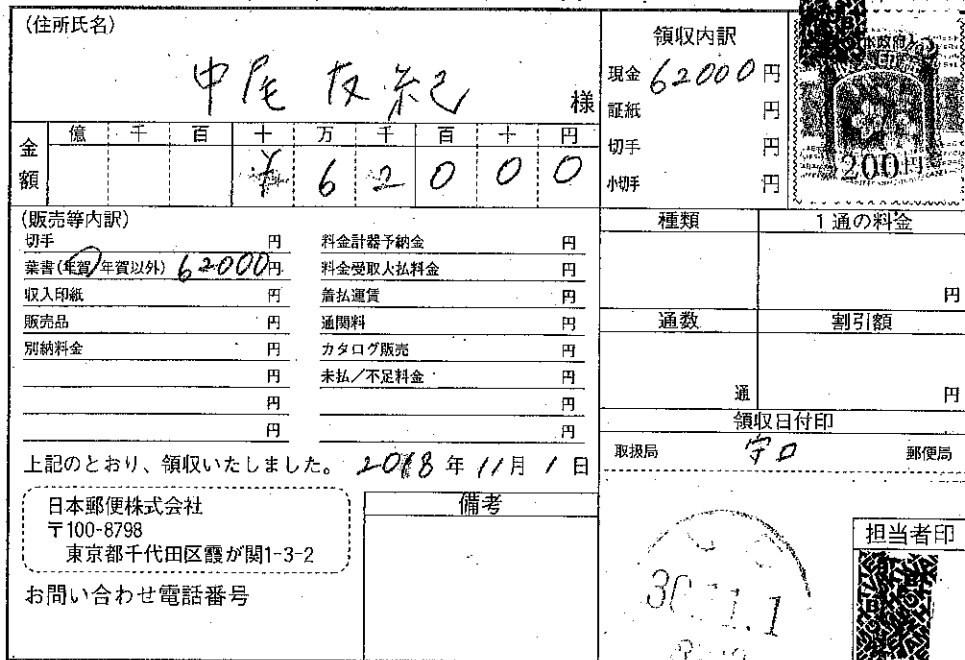 (住所氏名)
中尾 友紀 様
金額 億 千 百 十 万 千 百 十 円
¥ 6 2 0 0 0
領収内訳
現金 62000 円
証紙 円
切手 円
小切手 円
200円
(販売等内訳)
切手 円
葉書(年賀/年賀以外) 62000円
収入印紙 円
販売品 円
別納料金 円
円
円
円
料金計器予納金 円
料金受取人払料金 円
着払運賃 円
通関料 円
カタログ販売 円
未払/不足料金 円
円
円
種類 1通の料金
円
通数 割引額
通 円
領収日付印
取扱局 守口 郵便局
上記のとおり、領収いたしました。 2018年11月1日
日本郵便株式会社
〒100-8798
東京都千代田区霞が関1-3-2
お問い合わせ電話番号
備考
30.11.1
担当者印